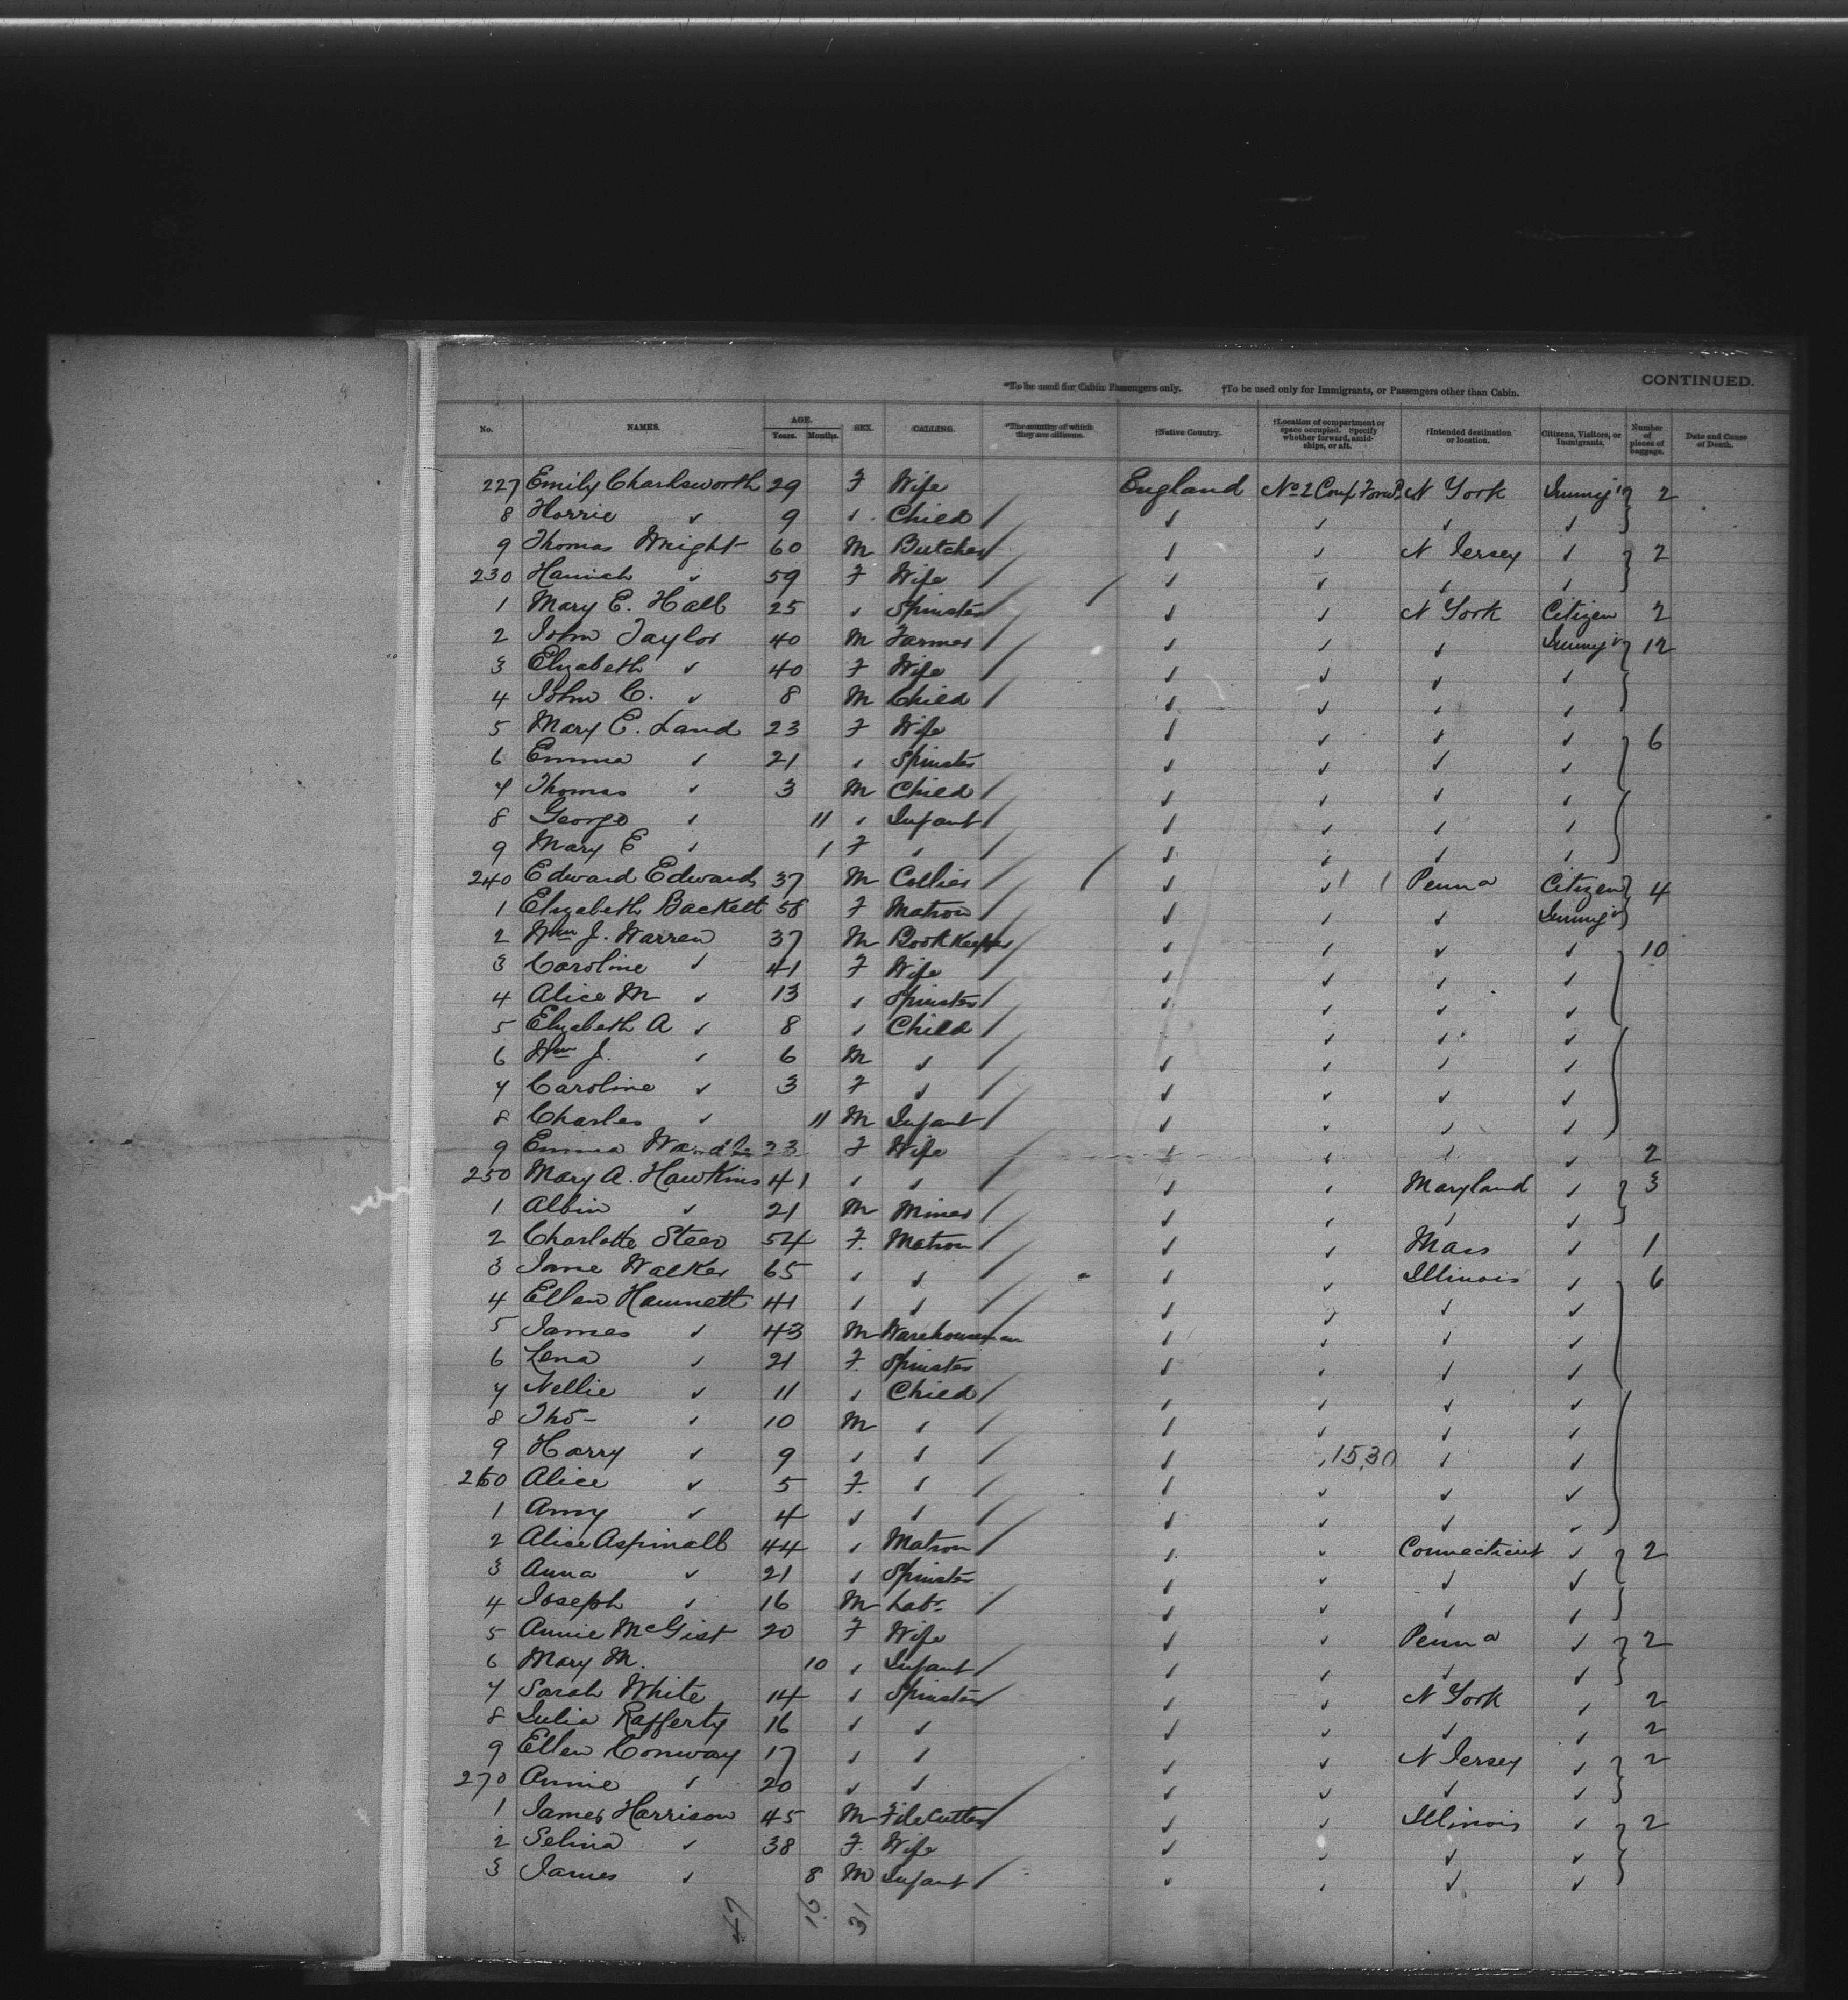 CONTINUED.
*To be used for Cabin Passengers only. †To be used only for Immigrants, or Passengers other than Cabin.
No. NAMES. AGE. Years. Months. SEX. CALLING. *The country of which they are citizens. †Native Country. †Location of compartment or space occupied. Specify whether forward, amidships, or aft. †Intended destination or location. Citizens, Visitors, or Immigrants. Number of pieces of baggage. Date and Cause of Death.
227 Emily Charlesworth 29 F Wife England No 2 Comp Forwd. N York Immigt 2
8 Harrie " 9 " Child " " " "
9 Thomas Wright 60 M Butcher " " N Jersey " 2
230 Hannah " 59 F Wife " " " "
1 Mary E. Hall 25 " Spinster " " N York Citizen 2
2 John Taylor 40 M Farmer " " " Immigt 12
3 Elizabeth " 40 F Wife " " " "
4 John C. " 8 M Child " " " "
5 Mary E. Land 23 F Wife " " " " 6
6 Emma " 21 " Spinster " " " "
7 Thomas " 3 M Child " " " "
8 George " 11 " Infant " " " "
9 Mary E " 1 F " " " " "
240 Edward Edwards 37 M Collier " " Penna Citizen 4
1 Elizabeth Backett 58 F Matron " " " Immigt
2 Wm J. Warren 37 M Bookkeeper " " " " 10
3 Caroline " 41 F Wife " " " "
4 Alice M " 13 " Spinster " " " "
5 Elizabeth A " 8 " Child " " "
6 Wm J. " 6 M " " " " "
7 Caroline " 3 F " " " " "
8 Charles " 11 M Infant " " " "
9 Emma 23 F Wife " " " " 2
250 Mary A. Hawkins 41 " " " " Maryland " 3
1 Albin " 21 M Miner " " " "
2 Charlotte Steer 54 F. Matron " " Mass " 1
3 Jane Walker 65 " " " " Illinois " 6
4 Ellen Hamnett 41 " " " " " "
5 James " 43 M Warehouseman " " " "
6 Lena " 21 F. Spinster " " " "
7 Nellie " 11 " Child " " " "
8 Tho- " 10 M " " " " "
9 Harry " 9 " " " " 1530 " "
260 Alice " 5 F. " " " " "
1 Amy " 4 " " " " " "
2 Alice Aspinall 44 " Matron " " Connecticut " 2
3 Anna " 21 " Spinster " " " "
4 Joseph " 16 M Labr " " " "
5 Annie McGist 20 F Wife " " Penna " 2
6 Mary M. 10 " Infant " " " "
7 Sarah White 14 " Spinster " " N York " 2
8 Julia Rafferty 16 " " " " " " 2
9 Ellen Conway 17 " " " " N Jersey " 2
270 Annie " 20 " " " " " "
1 James Harrison 45 M File Cutter " " Illinois " 2
2 Selina " 38 F. Wife " " " "
3 James " 8 M Infant " " " "
47 16 31